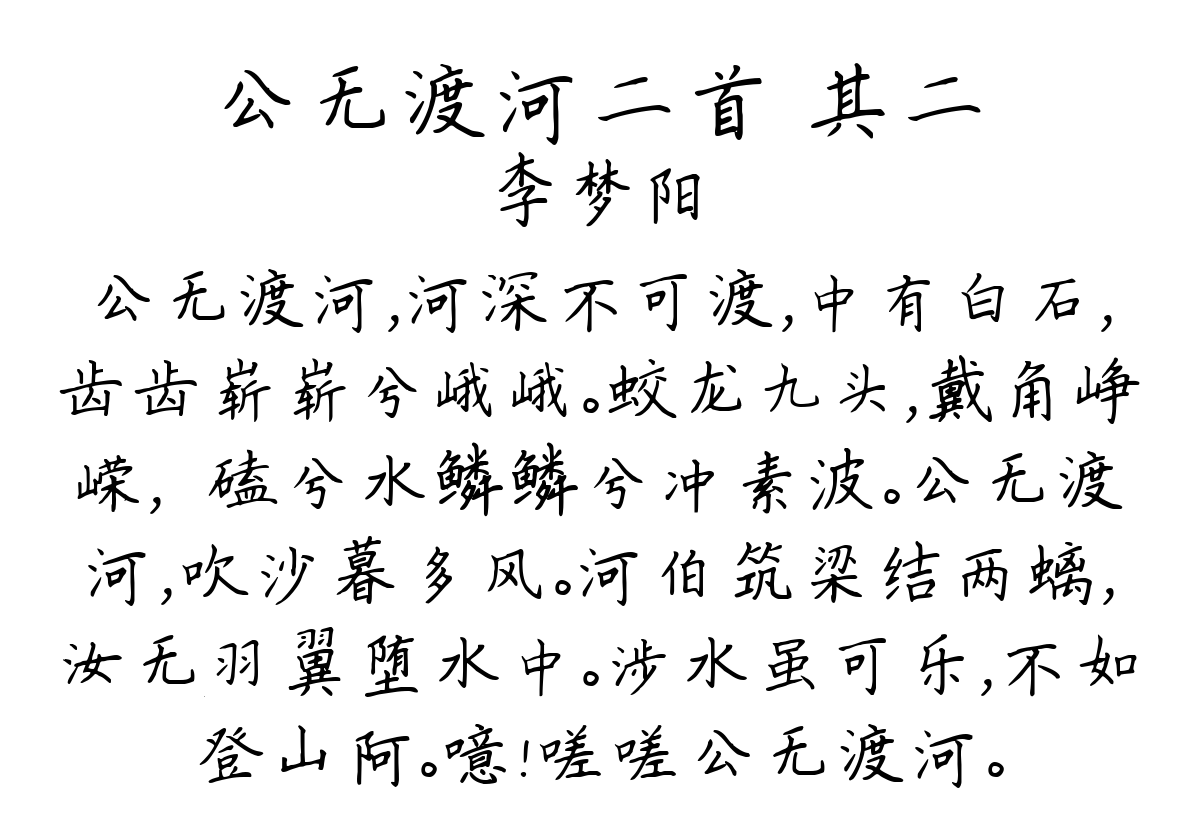 公无渡河二首 其二
李梦阳
公无渡河,河深不可渡,中有白石,
齿齿崭崭兮峨峨。蛟龙九头,戴角峥
嵘,磕兮水鳞鳞兮冲素波。公无渡
河,吹沙暮多风。河伯筑梁结两螭,
汝无羽翼堕水中。涉水虽可乐,不如
登山阿。噫!嗟嗟公无渡河。